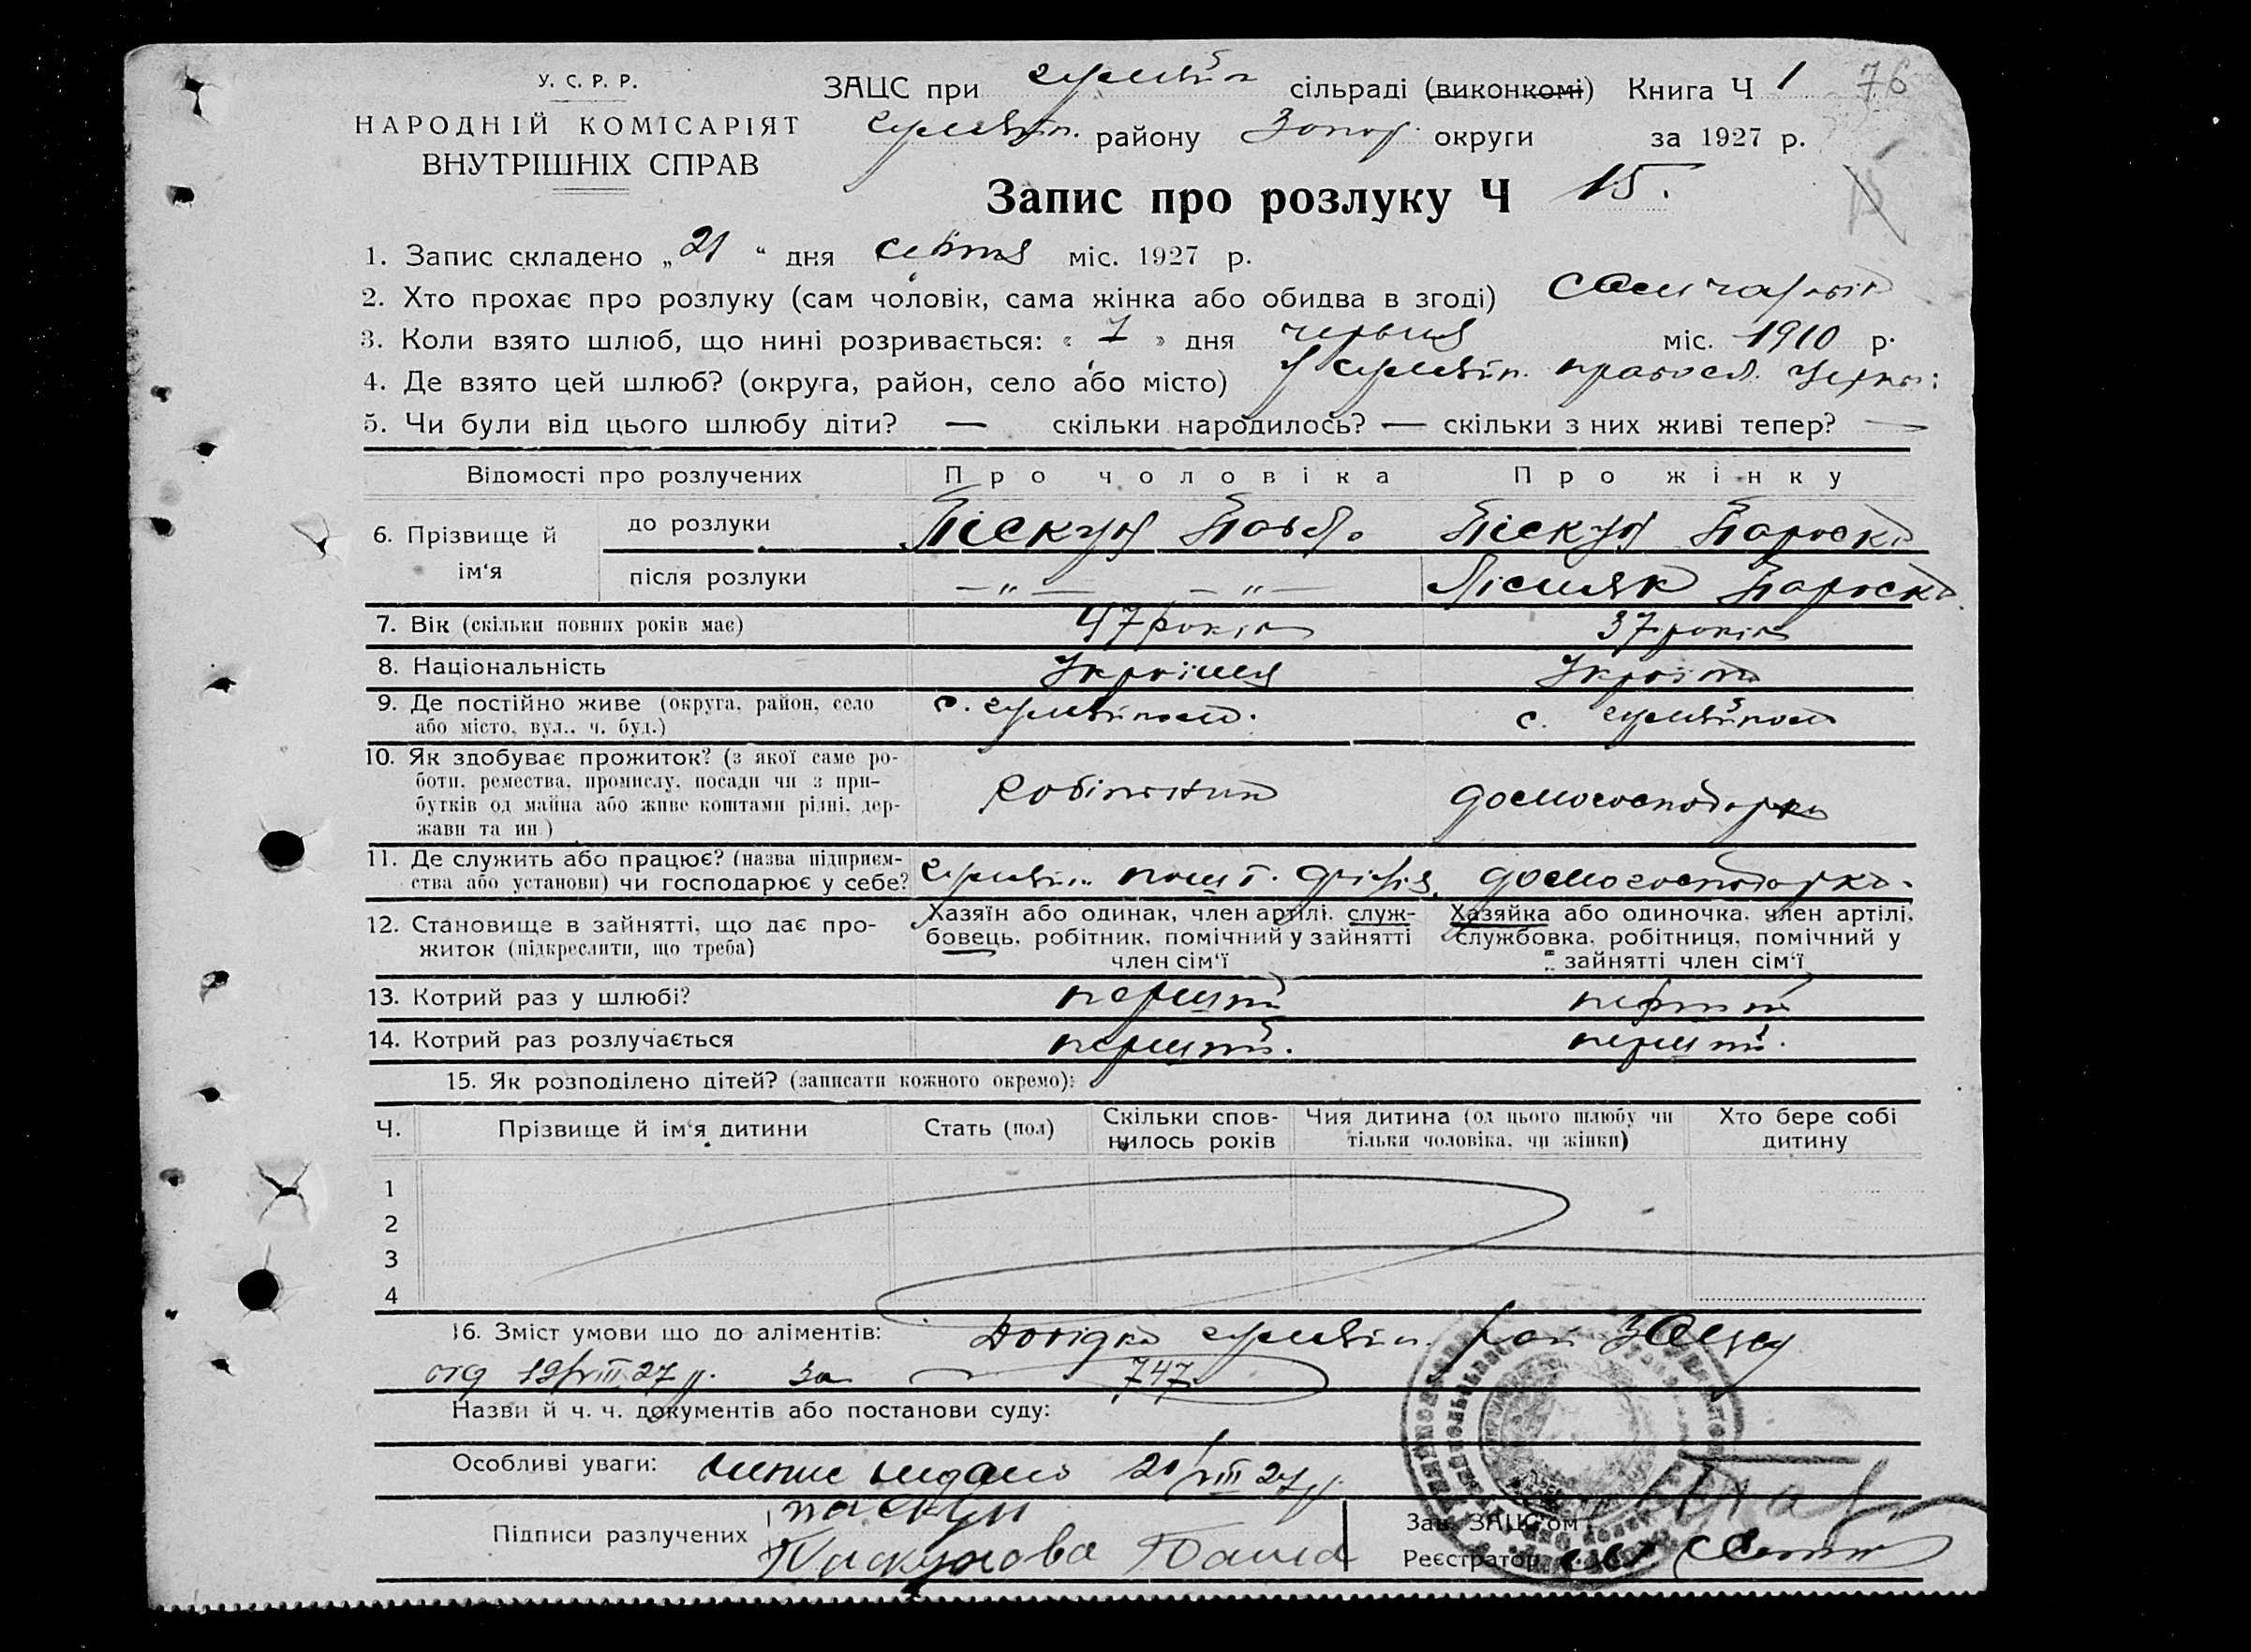 У. С. Р. Р.
НАРОДНІЙ КОМІСАРІЯТ
ВНУТРІШНІХ СПРАВ
ЗАЦС при сільраді (виконкомі) Книга Ч 1 76
району Запор. округи за 1927 р.
Запис про розлуку Ч 15.
1. Запис складено „21“ дня серпня міс. 1927 р.
2. Хто прохає про розлуку (сам чоловік, сама жінка або обидва в згоді) сам чоловік
3. Коли взято шлюб, що нині розривається: « 7 » дня червня міс. 1910 р.
4. Де взято цей шлюб? (округа, район, село або місто) у правосл. церкві
5. Чи були від цього шлюбу діти? — скільки народилось? — скільки з них живі тепер? —
Відомості про розлучених Про чоловіка Про жінку
6. Прізвище й ім‘я до розлуки Піскун Павло Піскун Параска
після розлуки — „ — — „ — Лісняк Параска
7. Вік (скільки повних років має) 47 років 37 років
8. Національність Українец Українка
9. Де постійно живе (округа, район, село
або місто, вул., ч. буд.) с. с.
10. Як здобуває прожиток? (з якої саме ро-
боти, ремества, промислу, посади чи з при-
бутків од майна або живе коштами рідні, дер-
жави та ин.) Робітник домогосподарка
11. Де служить або працює? (назва підприєм-
ства або установи) чи господарює у себе? домогосподарка.
12. Становище в зайнятті, що дає про-
житок (підкреслити, що треба)
Хазяїн або одинак, член артілі, служ-
бовець, робітник, помічний у зайнятті
член сім‘ї
Хазяйка або одиночка, член артілі,
службовка, робітниця, помічний у
зайнятті член сім‘ї
13. Котрий раз у шлюбі? перший перший
14. Котрий раз розлучається перший. перший.
15. Як розподілено дітей? (записати кожного окремо):
Ч. Прізвище й ім‘я дитини Стать (пол) Скільки спов-
нилось років Чия дитина (од цього шлюбу чи
тільки чоловіка, чи жінки) Хто бере собі
дитину
1
2
3
4
16. Зміст умови що до аліментів: Довідка рай ЗАЦСу
від 19/VIII 27 р. за 747
Назви й ч. ч. документів або постанови суду:
Особливі уваги: видано 20/VIII 27 р.
Підписи разлучених Піскун
Зав. ЗАЦС‘ом
Реєстратор